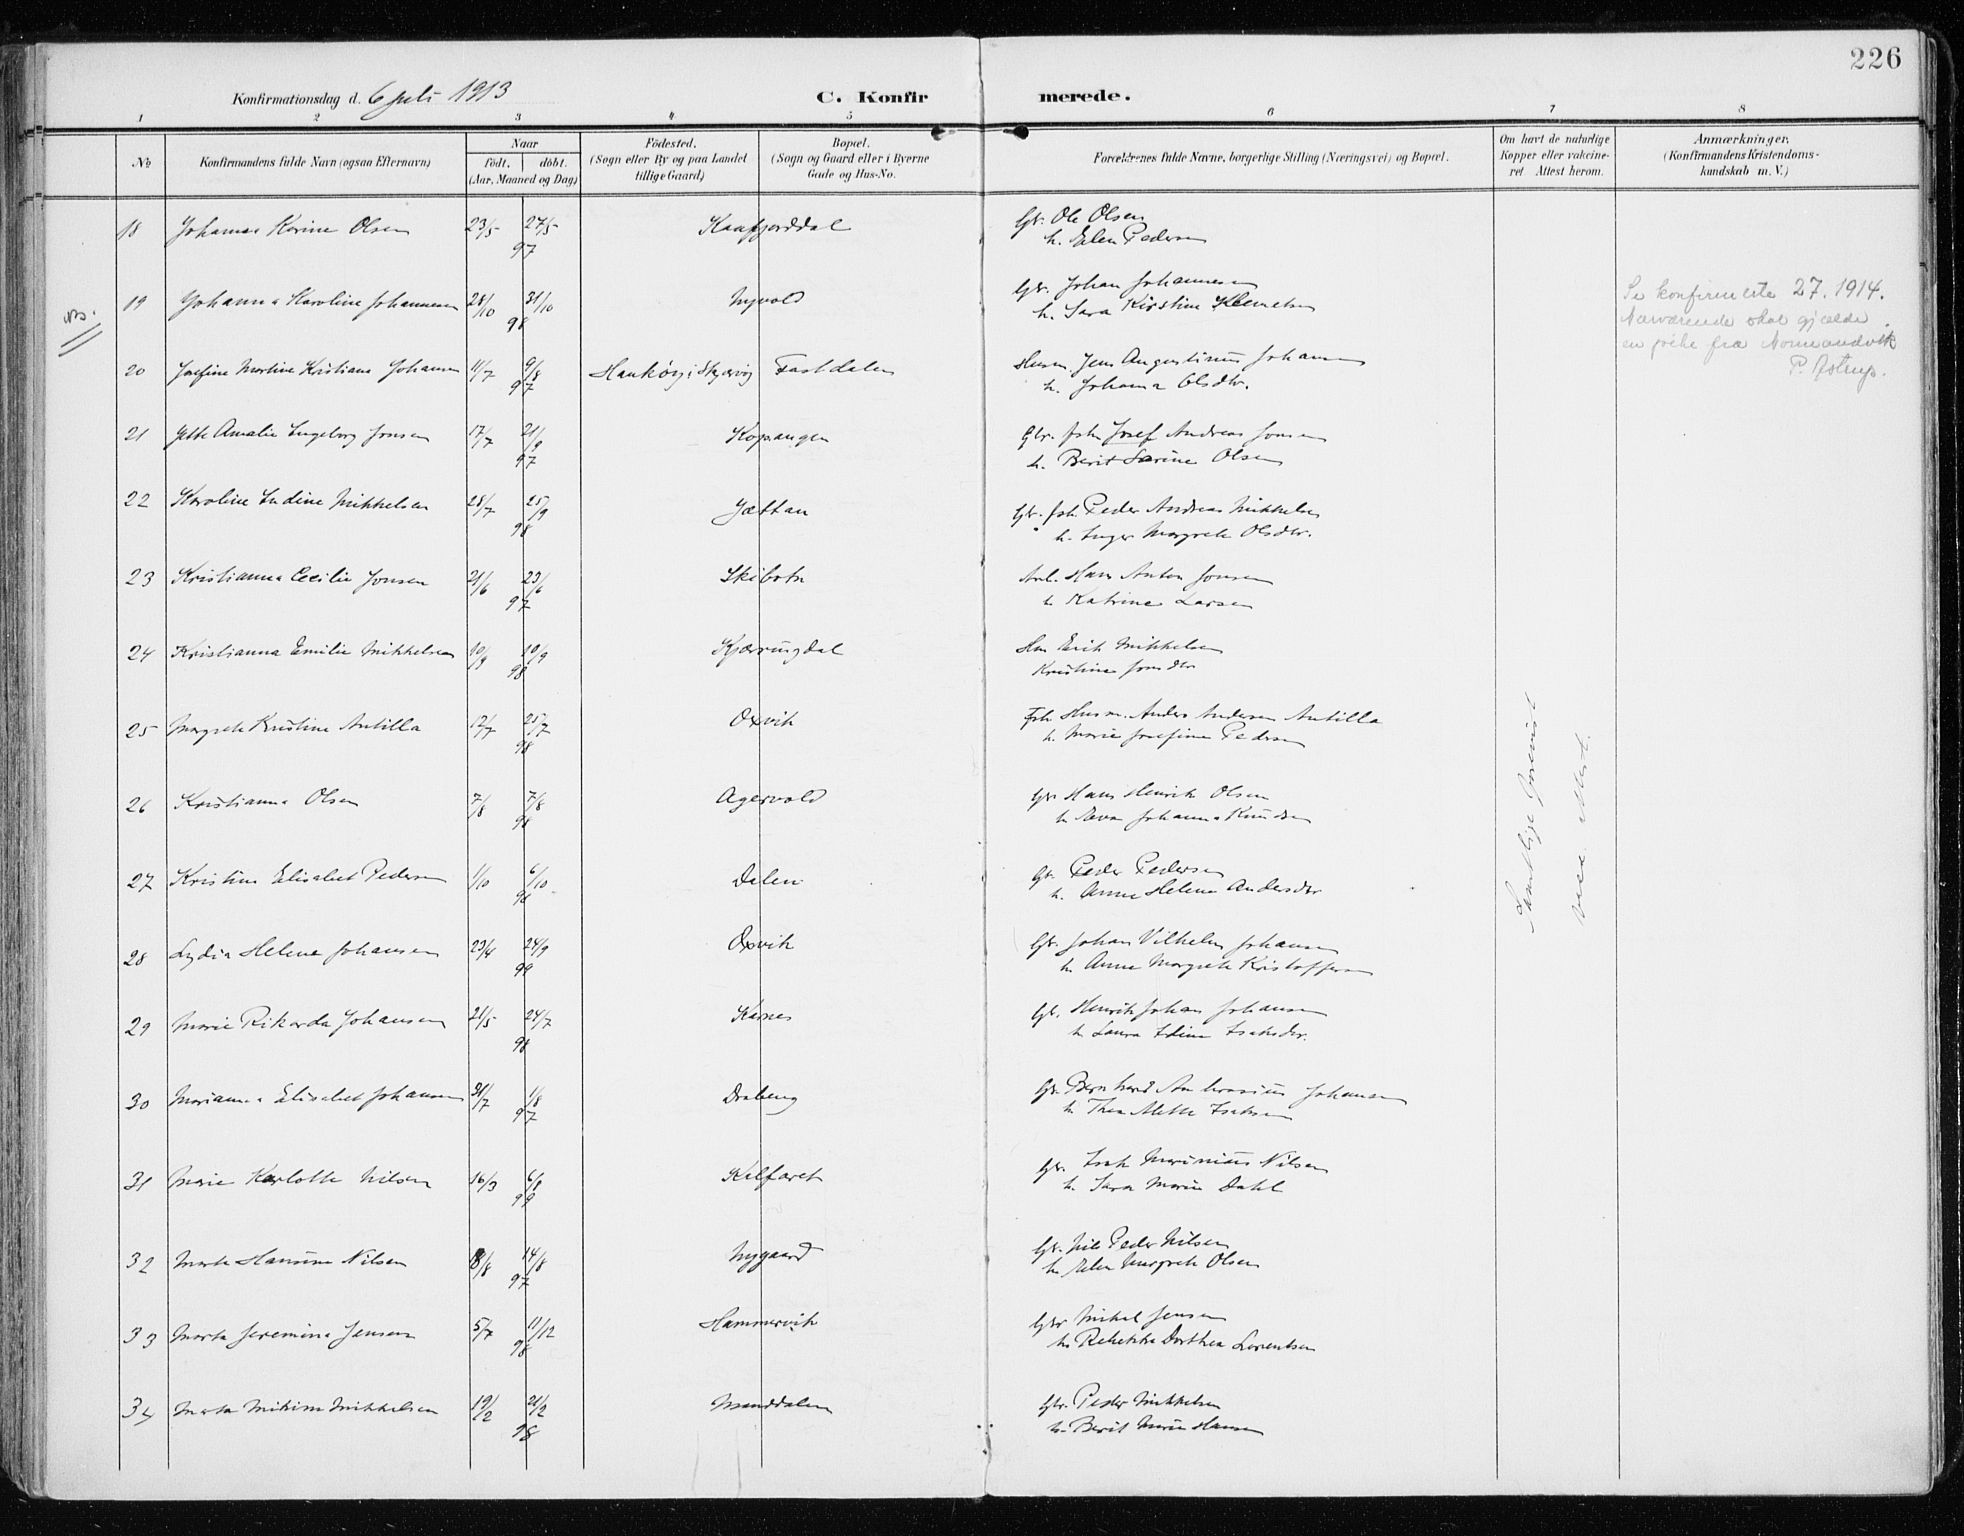 226
Konfirmationsdag d. 6 juli 1913
C. Konfirmerede.
1 2 3 4 5 6 7 8
No
Konfirmandens fulde Navn (ogsaa Efternavn)
Naar
født. døbt.
(Aar, Maaned og Dag)
Födested.
(Sogn eller By og paa Landet
tillige Gaard)
Bopæl.
(Sogn og Gaard eller i Byerne
Gade og Hus-No.
Forældrenes fulde Navne, borgerlige Stilling (Næringsvei) og Bopæl.
Om havt de naturlige
Kopper eller vakcine-
ret. Attest herom.
Anmærkninger.
(Konfirmandens Kristendoms-
kundskab m. V.)
18 Johanna Karine Olsen 23/5 27/5 97 Kaafjorddal Gbr. Ole Olsen
h. Elen Pedersen
NB.
19 Johanna Karoline Johannesen 28/10 31/10 98 Nyvold Gbr. Johan Johannesen
h. Sara Kirstine Klemetsen
Se konfirmerte 27. 1914.
Nærværende skal gjælde
en pike fra Normandvik
P. Astrup.
20 Josefine Martine Kristiane Johansen 11/7 9/8 97 Haukøy i Skjervøy Fastdalen Husm. Jens Augustinus Johansen
h. Johanna Olsdtr.
21 Jette Amalie Ingeborg Jonsen 17/7 21/9 97 Kopangen Gbr. fsh. Josef Andreas Jonsen
h. Berit Sarine Olsen
22 Karoline Indine Mikkelsen 28/7 25/9 98 Jættan Gbr. fsh. Peder Andreas Mikkelsen
h. Inger Margrete Olsdtr.
23 Kristianna Cecilie Jonsen 21/6 23/6 97 Skibotn Arb. Hans Anton Jonsen
h. Katrine Larsen
24 Kristianna Emilie Mikkelsen 10/9 10/9 98 Kjærringdal Hm Erik Mikkelsen
Kristine Jonsdtr
25 Margrete Kristine Antilla 12/7 25/7 98 Oxvik Fsh. Husm. Anders Andersen Antilla
h. Marie Josefine Pedersen
26 Kristianna Olsen 7/8 7/8 98 Agervold Gbr Hans Henrik Olsen
h. Johanna Knudsen
27 Kristine Elisabet Pedersen 1/10 6/10 98 Dalen Gbr. Peder Pedersen
h. Anne Helene Andersdtr
28 Lydia Helene Johansen 23/4 24/9 99 Oxvik Gbr. Johan Vilhelm Johansen
h. Anne Margrete Kristoffersen
29 Marie Rikarda Johansen 21/5 24/7 98 Karnes Gbr. Henrik Johan Johansen
h. Laura Edine Isaksdtr.
30 Marianna Elisabet Johansen 31/7 1/8 97 Drabeng Gbr. Bernhard Ambrosius Johansen
h. Thea Mette Isaksen
31 Marie Karlotte Nilsen 16/3 6/8 99 Kilfaret Gbr. Isak Marinius Nilsen
h. Sara Marie Dahl
32 Marte Hansine Nilsen 8/8 14/8 97 Nygaard Gbr. Nils Peder Nilsen
h. Elen Margrete Olsen
33 Marta Jeremina Jensen 5/7 11/12 98 Hammervik Gbr Mikal Jensen
h. Rebekka Dorthea Lorentsen
34 Marta Mikkelsen 19/2 21/2 98 Manddalen Gbr. Peder Mikkelsen
h. Berit Marie Hansen
Samtlige forevist
vacc. Attest.